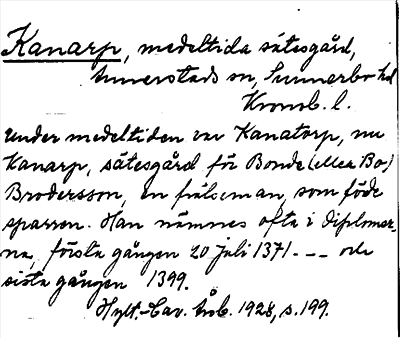 Kanarp, medeltida sätesgård,
Annerstads sn, Sunnerbo hd
Kronob. l.
Under medeltiden var Kanatorp, nu
Kanarp, sätesgård för Bonde (eller Bo)
Brodersson, en frälseman, som förde
sparren. Han nämnes ofta i diplomer-
na, första gången 20 juli 1371 --- och
sista gången 1399.
Hylt.-Cav. Årb. 1928, s. 199.